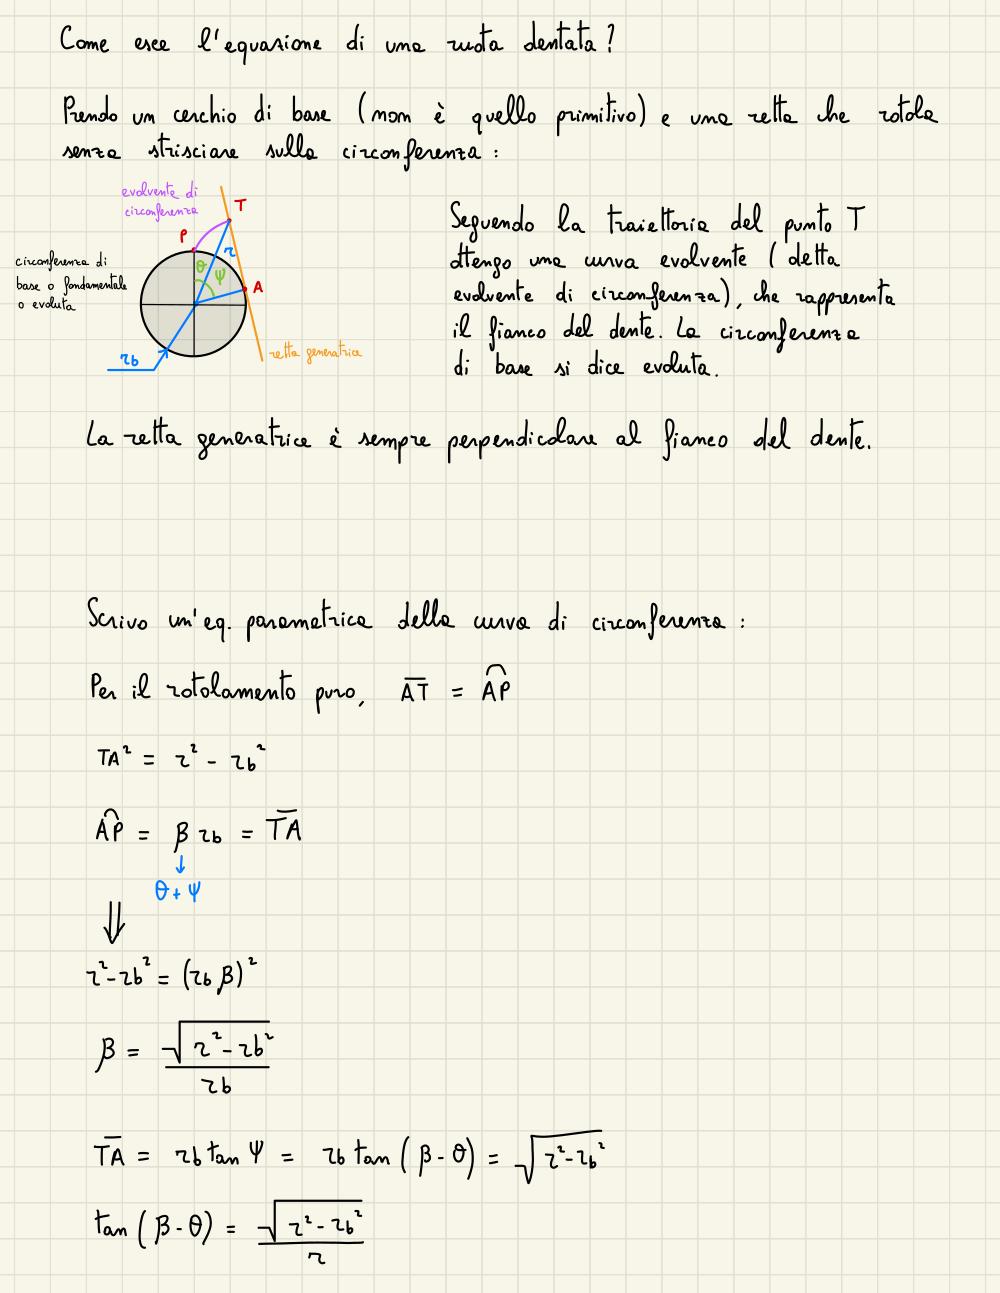 Come esce l'equazione di una ruota dentata?
Prendo un cerchio di base (non è quello primitivo) e una retta che rotola
senza strisciare sulla circonferenza:
evolvente di
circonferenza
T
P
r
θ
ψ
A
circonferenza di
base o fondamentale
o evoluta
rb
retta generatrice
Seguendo la traiettoria del punto T
ottengo una curva evolvente (detta
evolvente di circonferenza), che rappresenta
il fianco del dente. La circonferenza
di base si dice evoluta.
La retta generatrice è sempre perpendicolare al fianco del dente.
Scrivo un'eq. parametrica della curva di circonferenza:
Per il rotolamento puro, A̅T̅ = A͡P
TA² = r² - rb²
A͡P = β rb = T̅A̅
↓
θ + ψ
⇓
r² - rb² = (rb β)²
β = √(r² - rb²) / rb
T̅A̅ = rb tan ψ = rb tan (β - θ) = √(r² - rb²)
tan (β - θ) = √(r² - rb²) / r